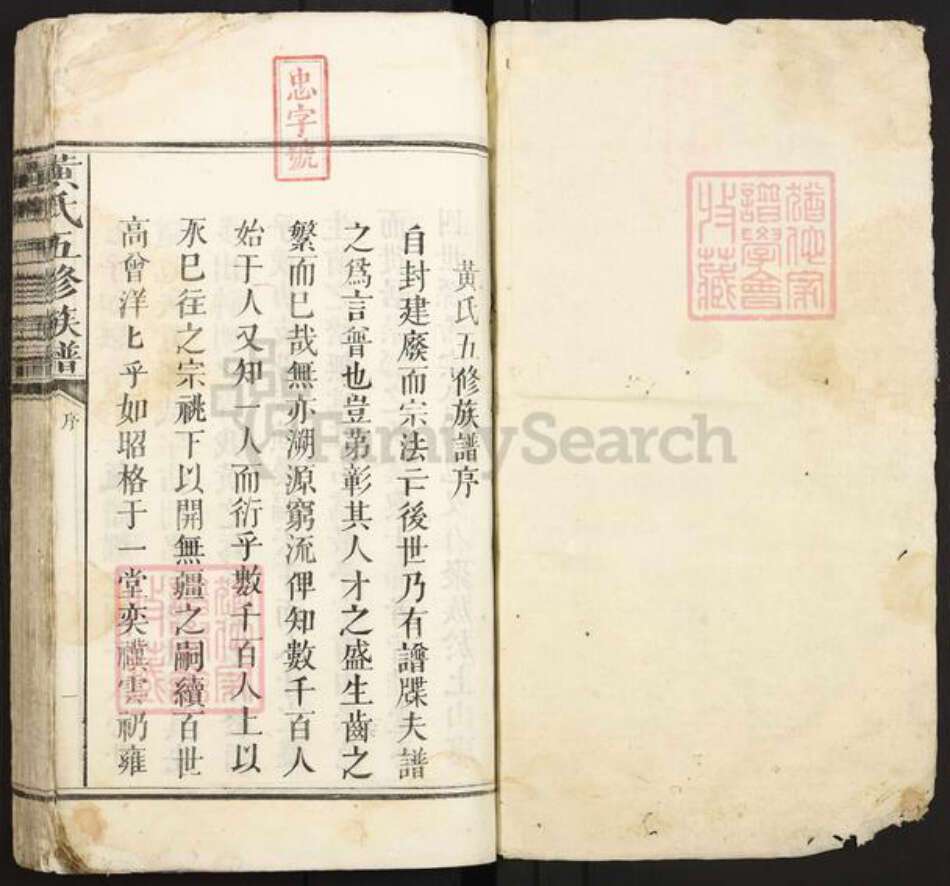 猶他家
譜學會
收藏
忠字號
黃氏五修族譜序
自封建廢而宗法亡後世乃有譜牒夫譜
之爲言普也豈第彰其人才之盛生齒之
繁而巳哉無亦溯源窮流俾知數千百人
始于人又知一人而衍乎數千百人上以
永巳往之宗祧下以開無疆之嗣續百世
高曾洋匕乎如昭格于一堂奕禩雲礽雍
黃氏五修族譜
序
一
猶他家
譜學會
收藏
FamilySearch